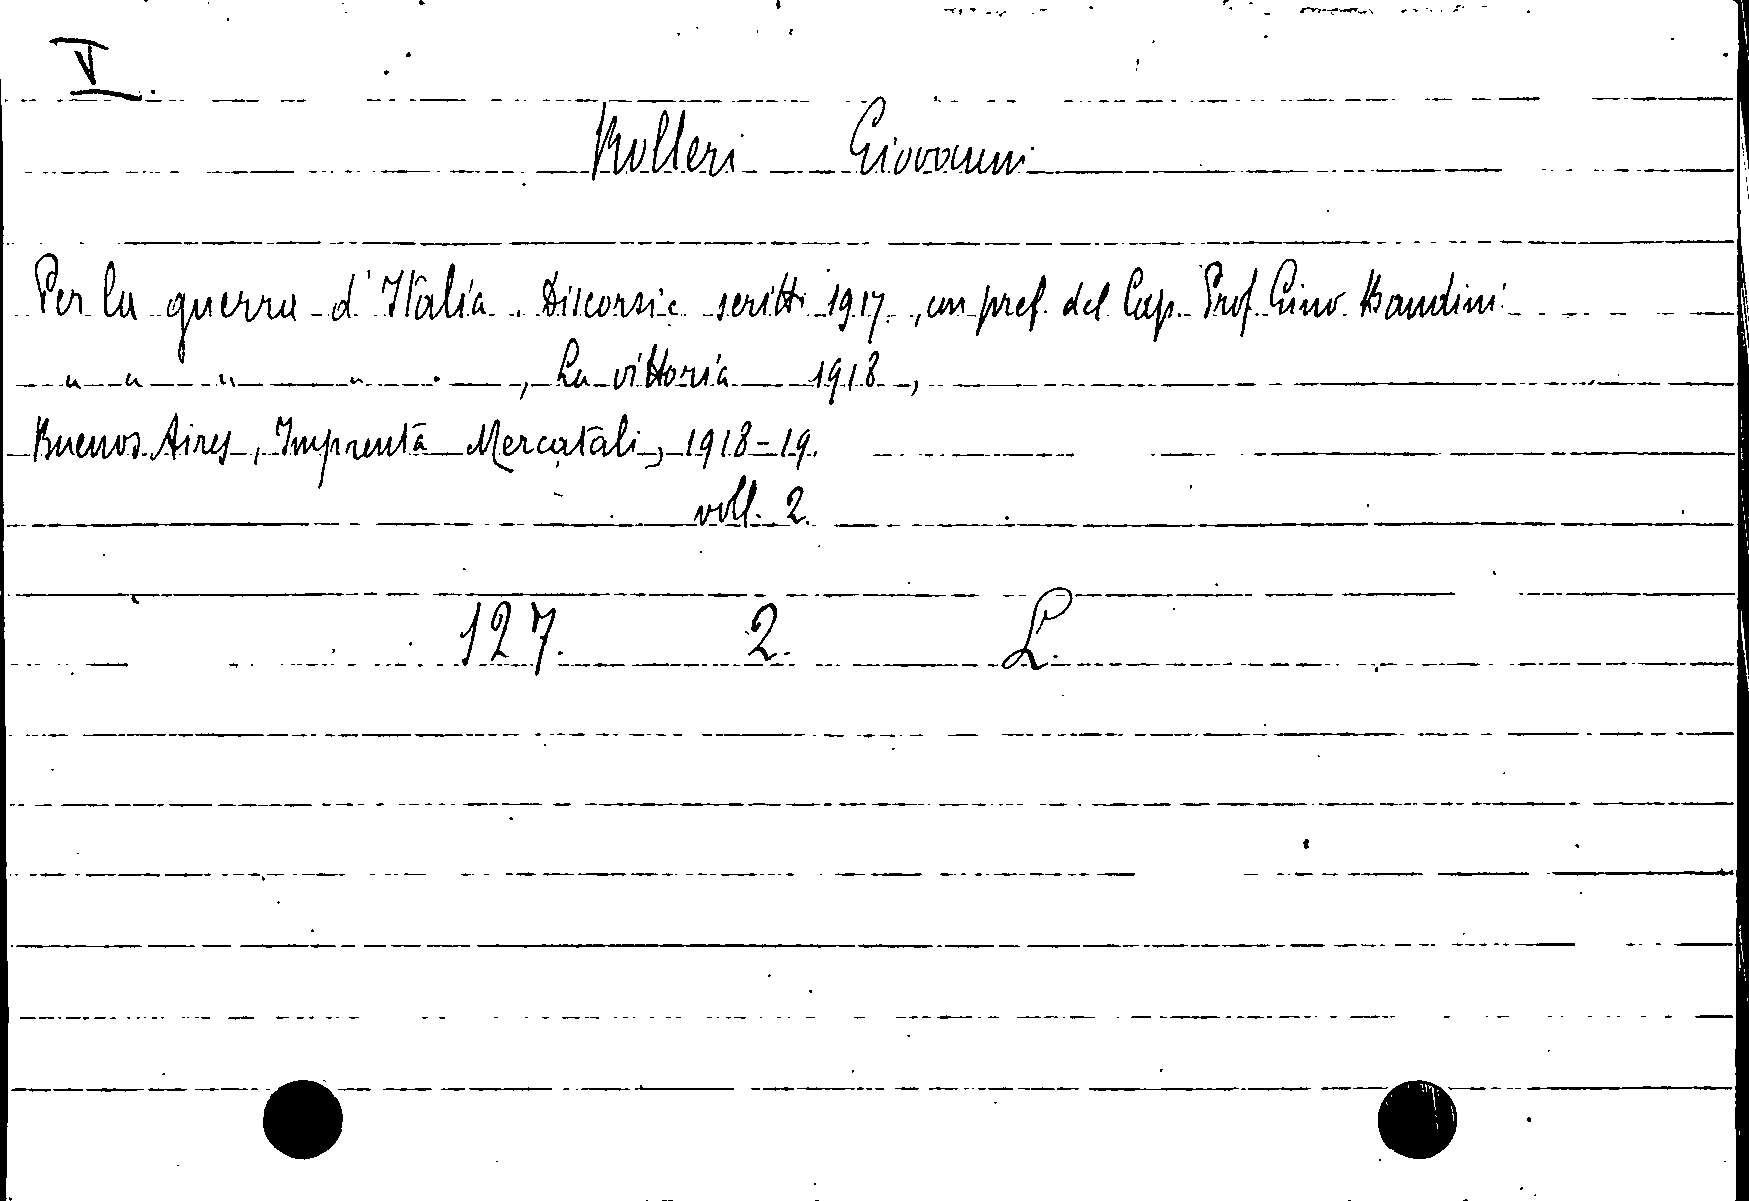 V
Rolleri Giovanni
Per la guerra d'Italia. Discorsi e scritti 1917., con pref. del Cap. Prof. Gino Bandini
" " " " , La vittoria 1918,
Buenos Aires, Imprenta Mercatali, 1918-19.
voll. 2.
127. 2. L.